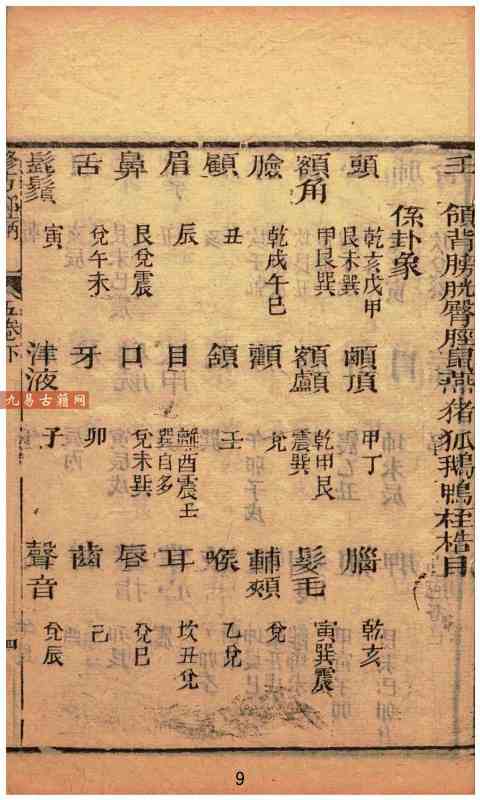 壬　領背膀胱臀脛鼠燕猪狐鵝鴨桎梏目
係卦象
頭　乾亥戊甲　艮未巽　顖頂　甲丁　腦　乾亥
額角　甲艮巽　額顱　乾甲艮　震巽　髮毛　寅巽震
臉　乾戌午巳　顴　兌　輔頰　兌
顧　丑　頷　壬　喉　乙兌
眉　辰　目　離酉震壬　巽白多　耳　坎丑兌
鼻　艮兌震　口　兌未巽　唇　兌巳
舌　兌午未　牙　卯　齒　己
髭鬚　寅　津液　子　聲音　兌辰
五卷下
四
九易古籍网
9